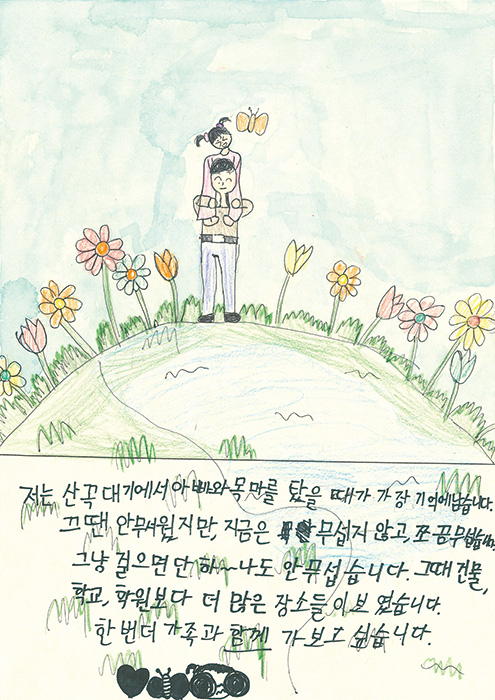 저는 산꼭대기에서 아빠와 목마를 탔을 때가 가장 기억에 남습니다.
그땐 안 무서웠지만, 지금은 무섭지 않고, 쪼꼼 무섭습니다.
그냥 걸으면 단 하~나도 안 무섭습니다. 그때 건물,
학교, 학원보다 더 많은 장소들이 보였습니다.
한 번 더 가족과 함께 가보고 싶습니다.